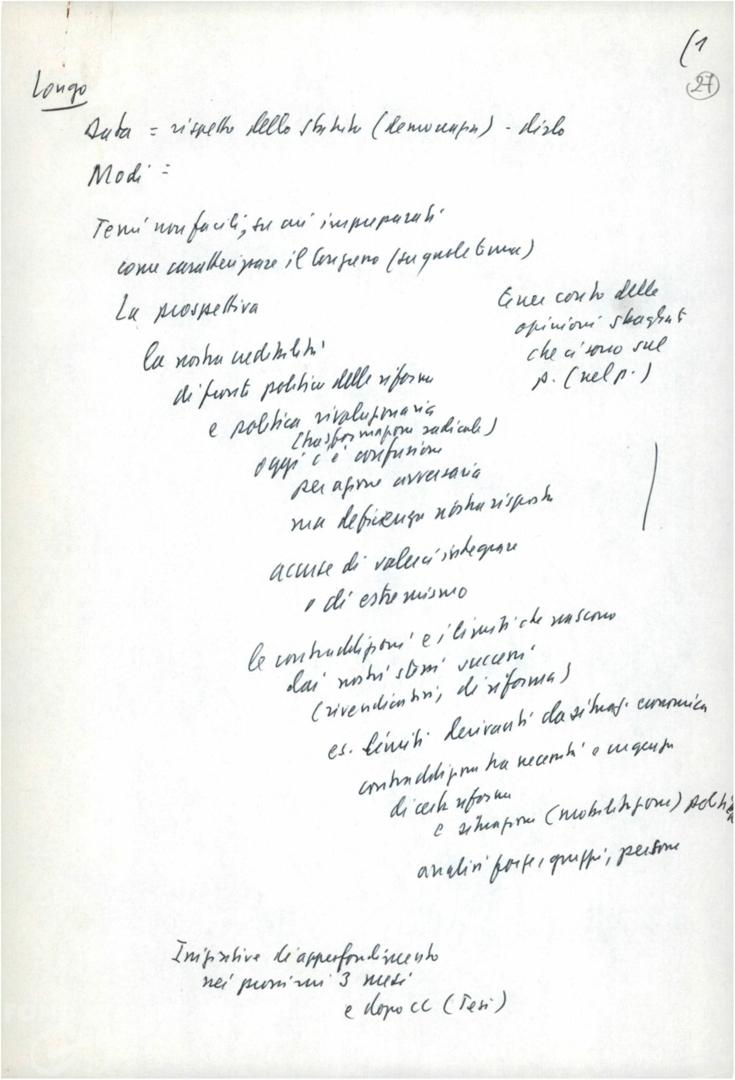 (1
27
Longo
Data = rispetto dello statuto (democrazia) -
Modi =
Temi non facili, su cui impreparati
come caratterizzare il Congresso (su quale tema)
La prospettiva
la nostra credibilità
di fronte politica delle riforme
e politica rivoluzionaria
(trasformazione radicale)
oggi c'è confusione
per azione avversaria
ma deficienza nostra risposta
accuse di volerci integrare
o di estremismo
Tener conto delle
opinioni sbagliate
che ci sono sul
p. (nel p.)
le contraddizioni e i limiti che nascono
dai nostri stessi successi
(rivendicativi, di riforma)
es. limiti derivanti da situaz. economica
contraddizione tra necessità e urgenza
di certe riforme
e situazione (mobilitazione)
analisi forze, gruppi, persone
Iniziative di approfondimento
nei prossimi 3 mesi
e dopo CC (Tesi)